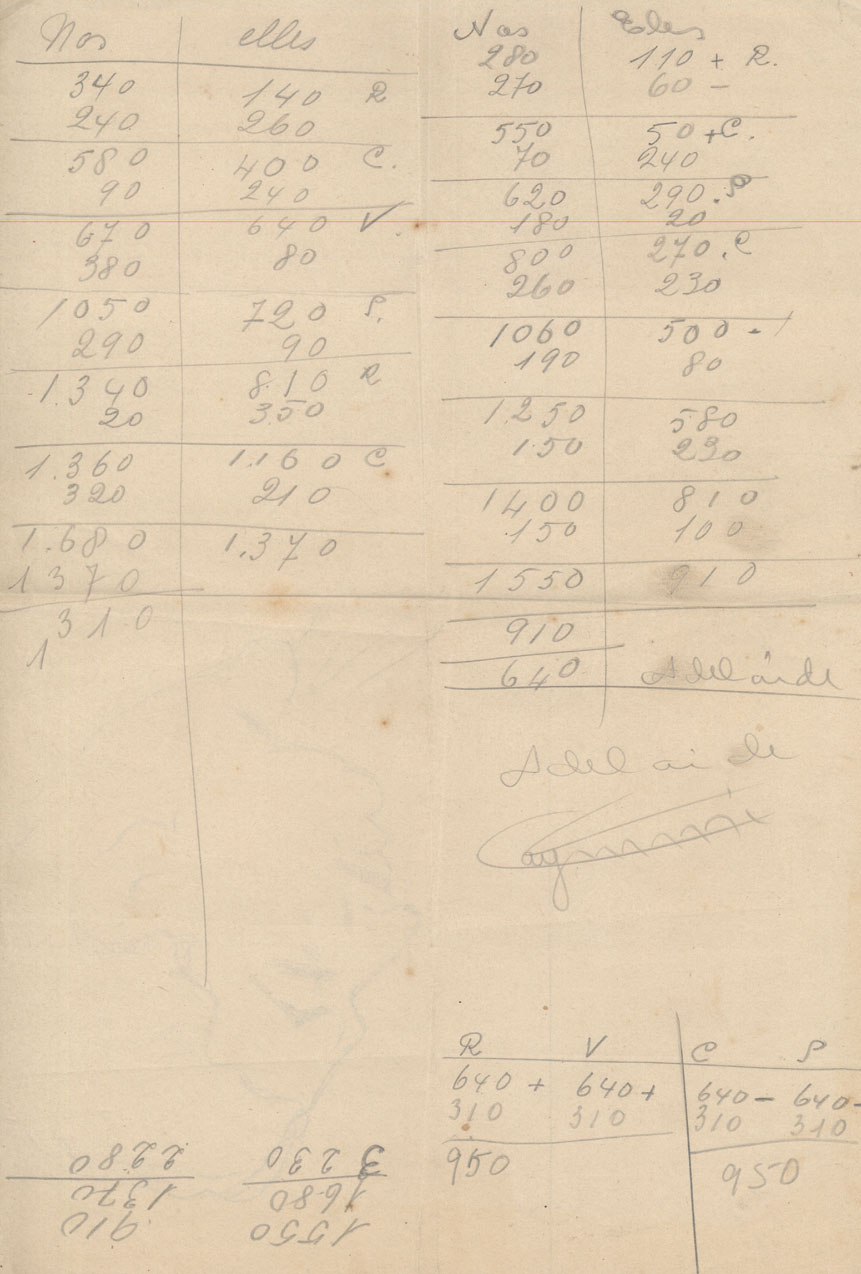 Nos elles
340 140 R
240 260
580 400 C.
90 240
670 640 V
380 80
1050 720 P.
290 90
1.340 810 R
20 350
1.360 1.160 C
320 210
1.680 1.370
1370
310
1
Nos Eles
280 110 + R.
270 60 -
550 50 + C.
70 240
620 290 . P
180 20
800 270 . C
260 230
1060 500 -
190 80
1.250 580
150 230
1400 810
150 100
1550 910
910
640 Adelaide
Adelaide
R V C P
640 + 640 + 640 - 640 -
310 310 310 310
950 950
1550 910
1680 1370
3230 2280